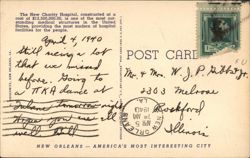 The New Charity Hospital, constructed at a
cost of $12,500,000.00, is one of the most out-
standing medical structures in the United
States, providing the most modern of hospital
facilities for the people.
April 4, 1940
Still seeing a lot
that we missed
before. Going to
a TKA dance at
Tulane tomorrow night.
Hope you are all
well. Bill
POST CARD
Mr. & Mrs. W. J. P.
2303 Melrose
Rockford
Illinois
NEW ORLEANS
APR 5
1940
LA
NEW ORLEANS — AMERICA'S MOST INTERESTING CITY